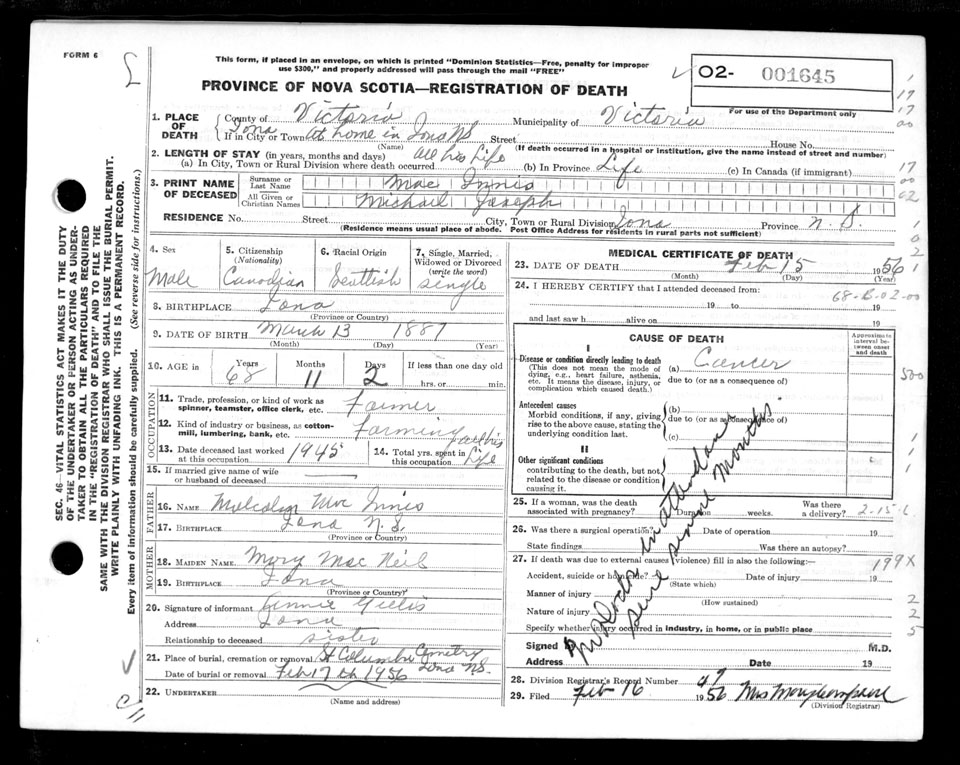 FORM 6
This form, if placed in an envelope, on which is printed "Dominion Statistics—Free, penalty for improper
use $300," and properly addressed will pass through the mail "FREE"
O2- 001645
PROVINCE OF NOVA SCOTIA—REGISTRATION OF DEATH
For use of the Department only
1. PLACE OF DEATH
County of Victoria Municipality of Victoria
Iona
If in City or Town At home in Iona NS Street House No.
(Name) (If death occurred in a hospital or institution, give the name instead of street and number)
2. LENGTH OF STAY (in years, months and days)
(a) In City, Town or Rural Division where death occurred All his Life (b) In Province Life (c) In Canada (if immigrant)
3. PRINT NAME OF DECEASED
Surname or Last Name Mac Innis
All Given or Christian Names Michael Joseph
RESIDENCE No. Street City, Town or Rural Division Iona Province N. S.
(Residence means usual place of abode. Post Office Address for residents in rural parts not sufficient)
4. Sex Male
5. Citizenship (Nationality) Canadian
6. Racial Origin Scottish
7. Single, Married, Widowed or Divorced (write the word) single
8. BIRTHPLACE Iona
(Province or Country)
9. DATE OF BIRTH March 13 1887
(Month) (Day) (Year)
10. AGE in Years 68 Months 11 Days 2 If less than one day old
hrs. or min.
OCCUPATION
11. Trade, profession, or kind of work as spinner, teamster, office clerk, etc. Farmer
12. Kind of industry or business, as cotton-mill, lumbering, bank, etc. Farming
13. Date deceased last worked at this occupation 1945
14. Total yrs. spent in this occupation all his Life
15. If married give name of wife or husband of deceased
FATHER
16. NAME Malcolm Mac Innis
17. BIRTHPLACE Iona N. S.
(Province or Country)
MOTHER
18. MAIDEN NAME Mary Mac Neil
19. BIRTHPLACE Iona
(Province or Country)
20. Signature of informant Gillis
Address Iona
Relationship to deceased sister
21. Place of burial, cremation or removal St Columba Cemetry Iona NS.
Date of burial or removal Feb 17 th 1956
22. UNDERTAKER
(Name and address)
MEDICAL CERTIFICATE OF DEATH
23. DATE OF DEATH Feb 15 1956
(Month) (Day) (Year)
24. I HEREBY CERTIFY that I attended deceased from:
68-B-02-00
19 to 19
and last saw h alive on 19
CAUSE OF DEATH
Approximate interval between onset and death
I
Disease or condition directly leading to death (a) Cancer
(This does not mean the mode of dying, e.g., heart failure, asthenia, etc. It means the disease, injury, or complication which caused death.)
due to (or as a consequence of)
500
Antecedent causes (b)
Morbid conditions, if any, giving rise to the above cause, stating the underlying condition last.
due to (or as a consequence of)
(c)
II
Other significant conditions
contributing to the death, but not related to the disease or condition causing it.
No Doctor in attendance since several months
25. If a woman, was the death associated with pregnancy? Duration weeks. Was there a delivery?
26. Was there a surgical operation? Date of operation 19
State findings Was there an autopsy?
27. If death was due to external causes (violence) fill in also the following:
199X
Accident, suicide or homicide? Date of injury 19
(State which)
Manner of injury
(How sustained)
Nature of injury
Specify whether injury occurred in industry, in home, or in public place
Signed M.D.
Address Date 19
28. Division Registrar's Record Number 47
29. Filed Feb 16 1956
(Division Registrar)
SEC. 46—VITAL STATISTICS ACT MAKES IT THE DUTY
OF THE UNDERTAKER OR PERSON ACTING AS UNDER-
TAKER TO OBTAIN ALL THE PARTICULARS REQUIRED
IN THE "REGISTRATION OF DEATH" AND TO FILE THE
SAME WITH THE DIVISION REGISTRAR WHO SHALL ISSUE THE BURIAL PERMIT.
WRITE PLAINLY WITH UNFADING INK. THIS IS A PERMANENT RECORD.
Every item of information should be carefully supplied. (See reverse side for instructions.)